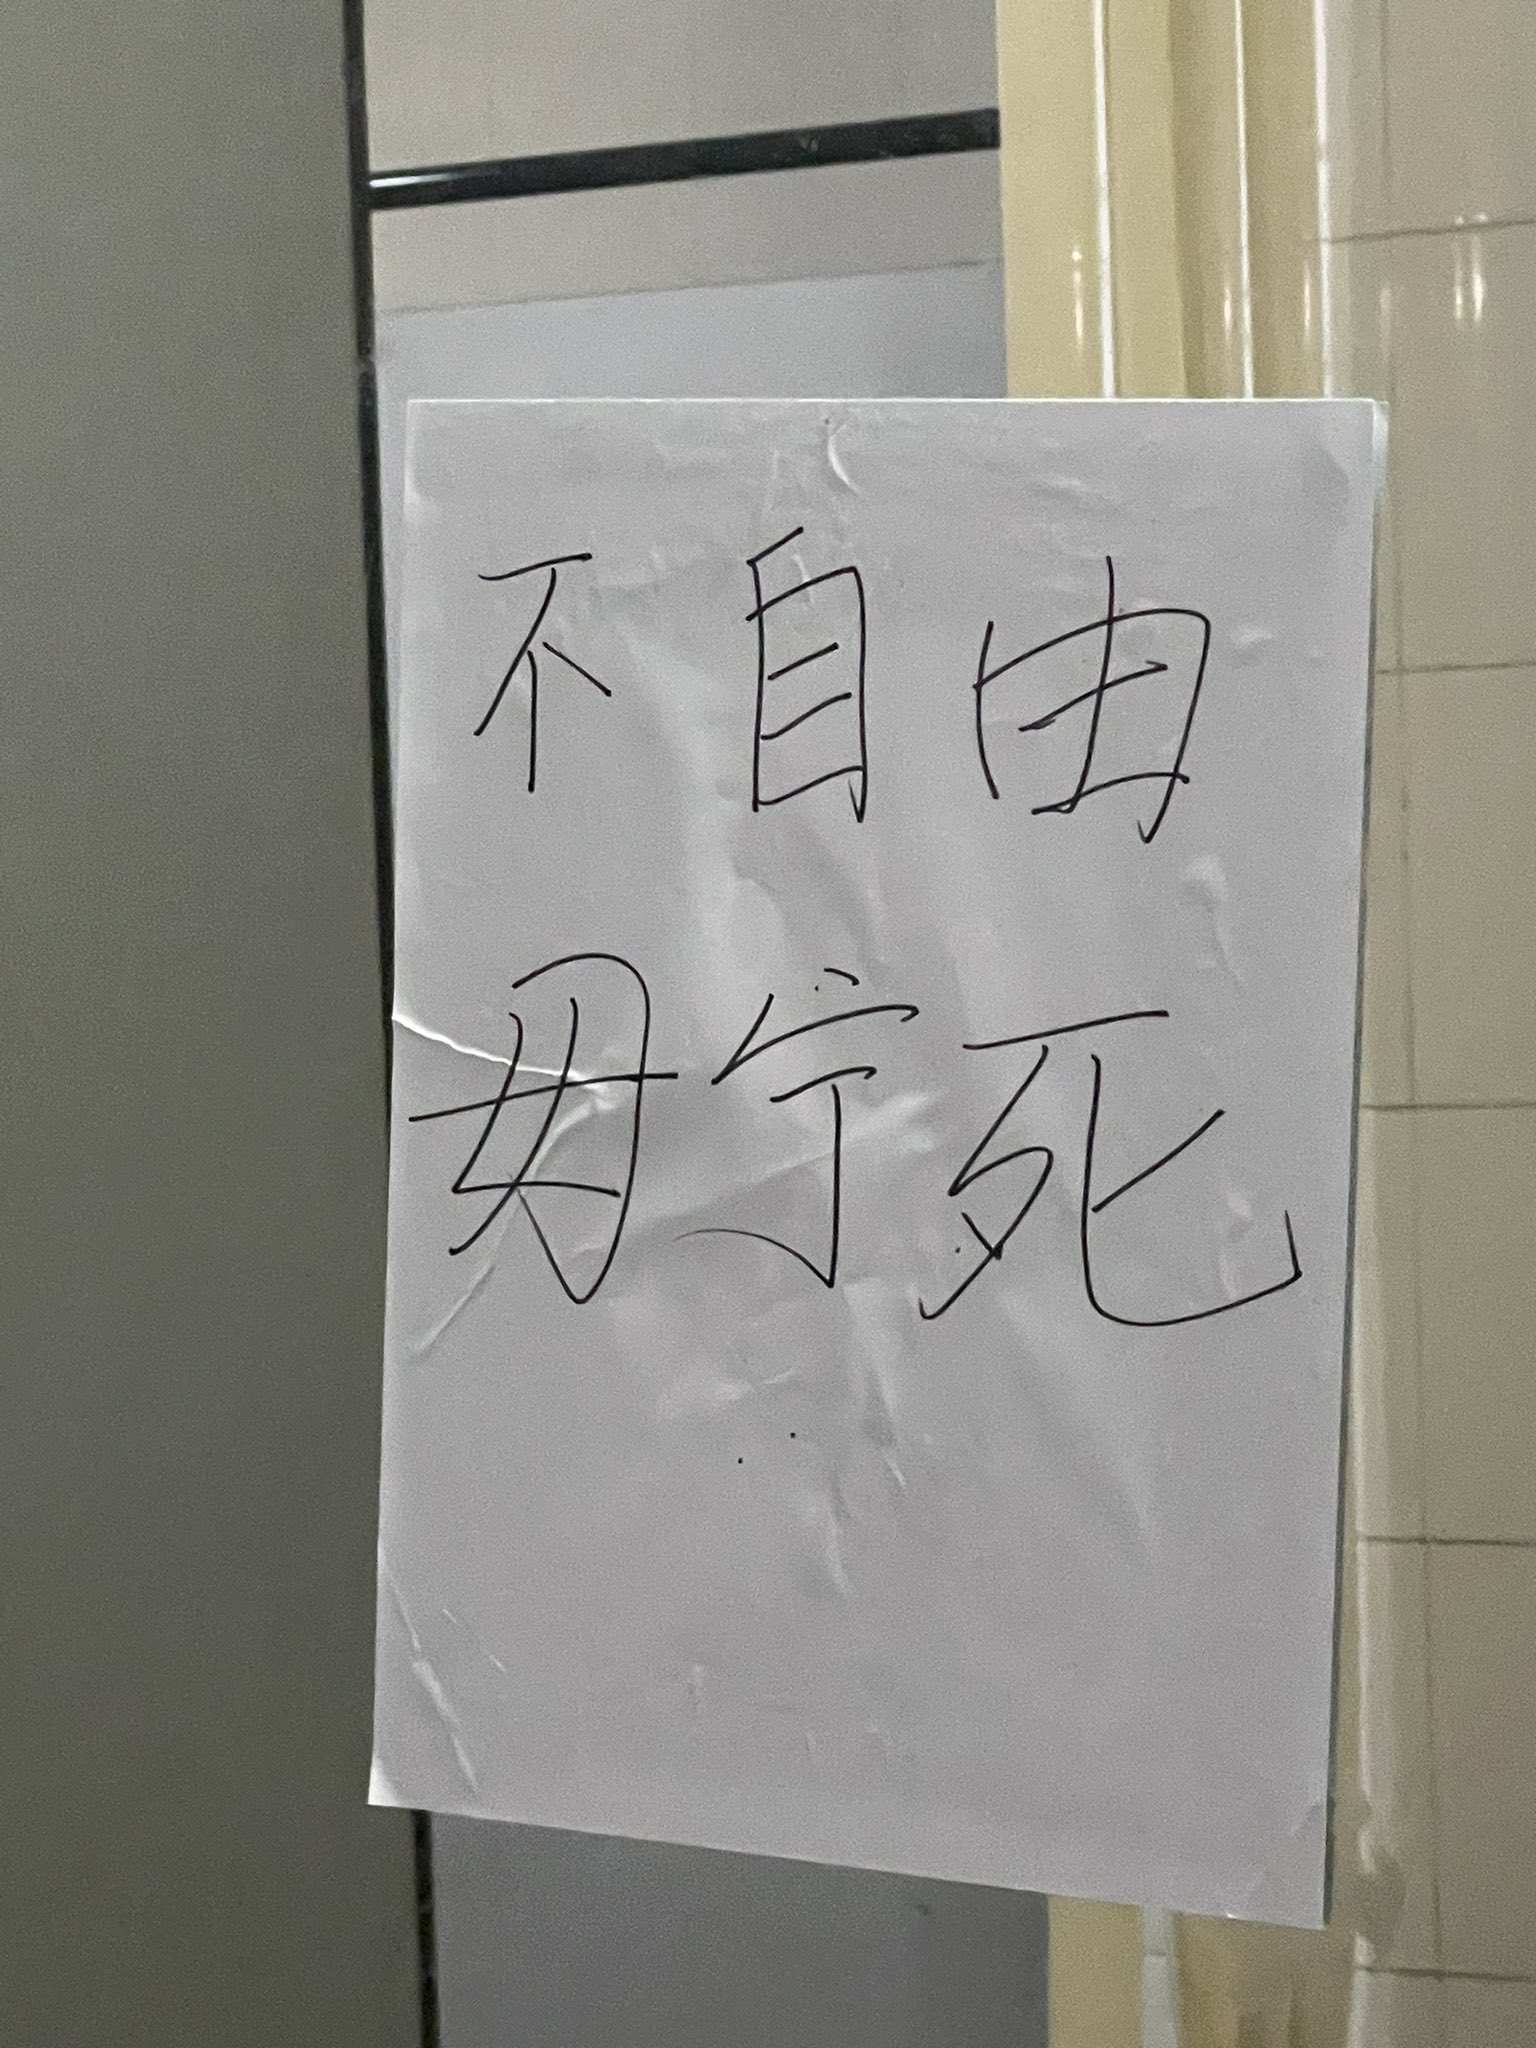 不自由
毋宁死